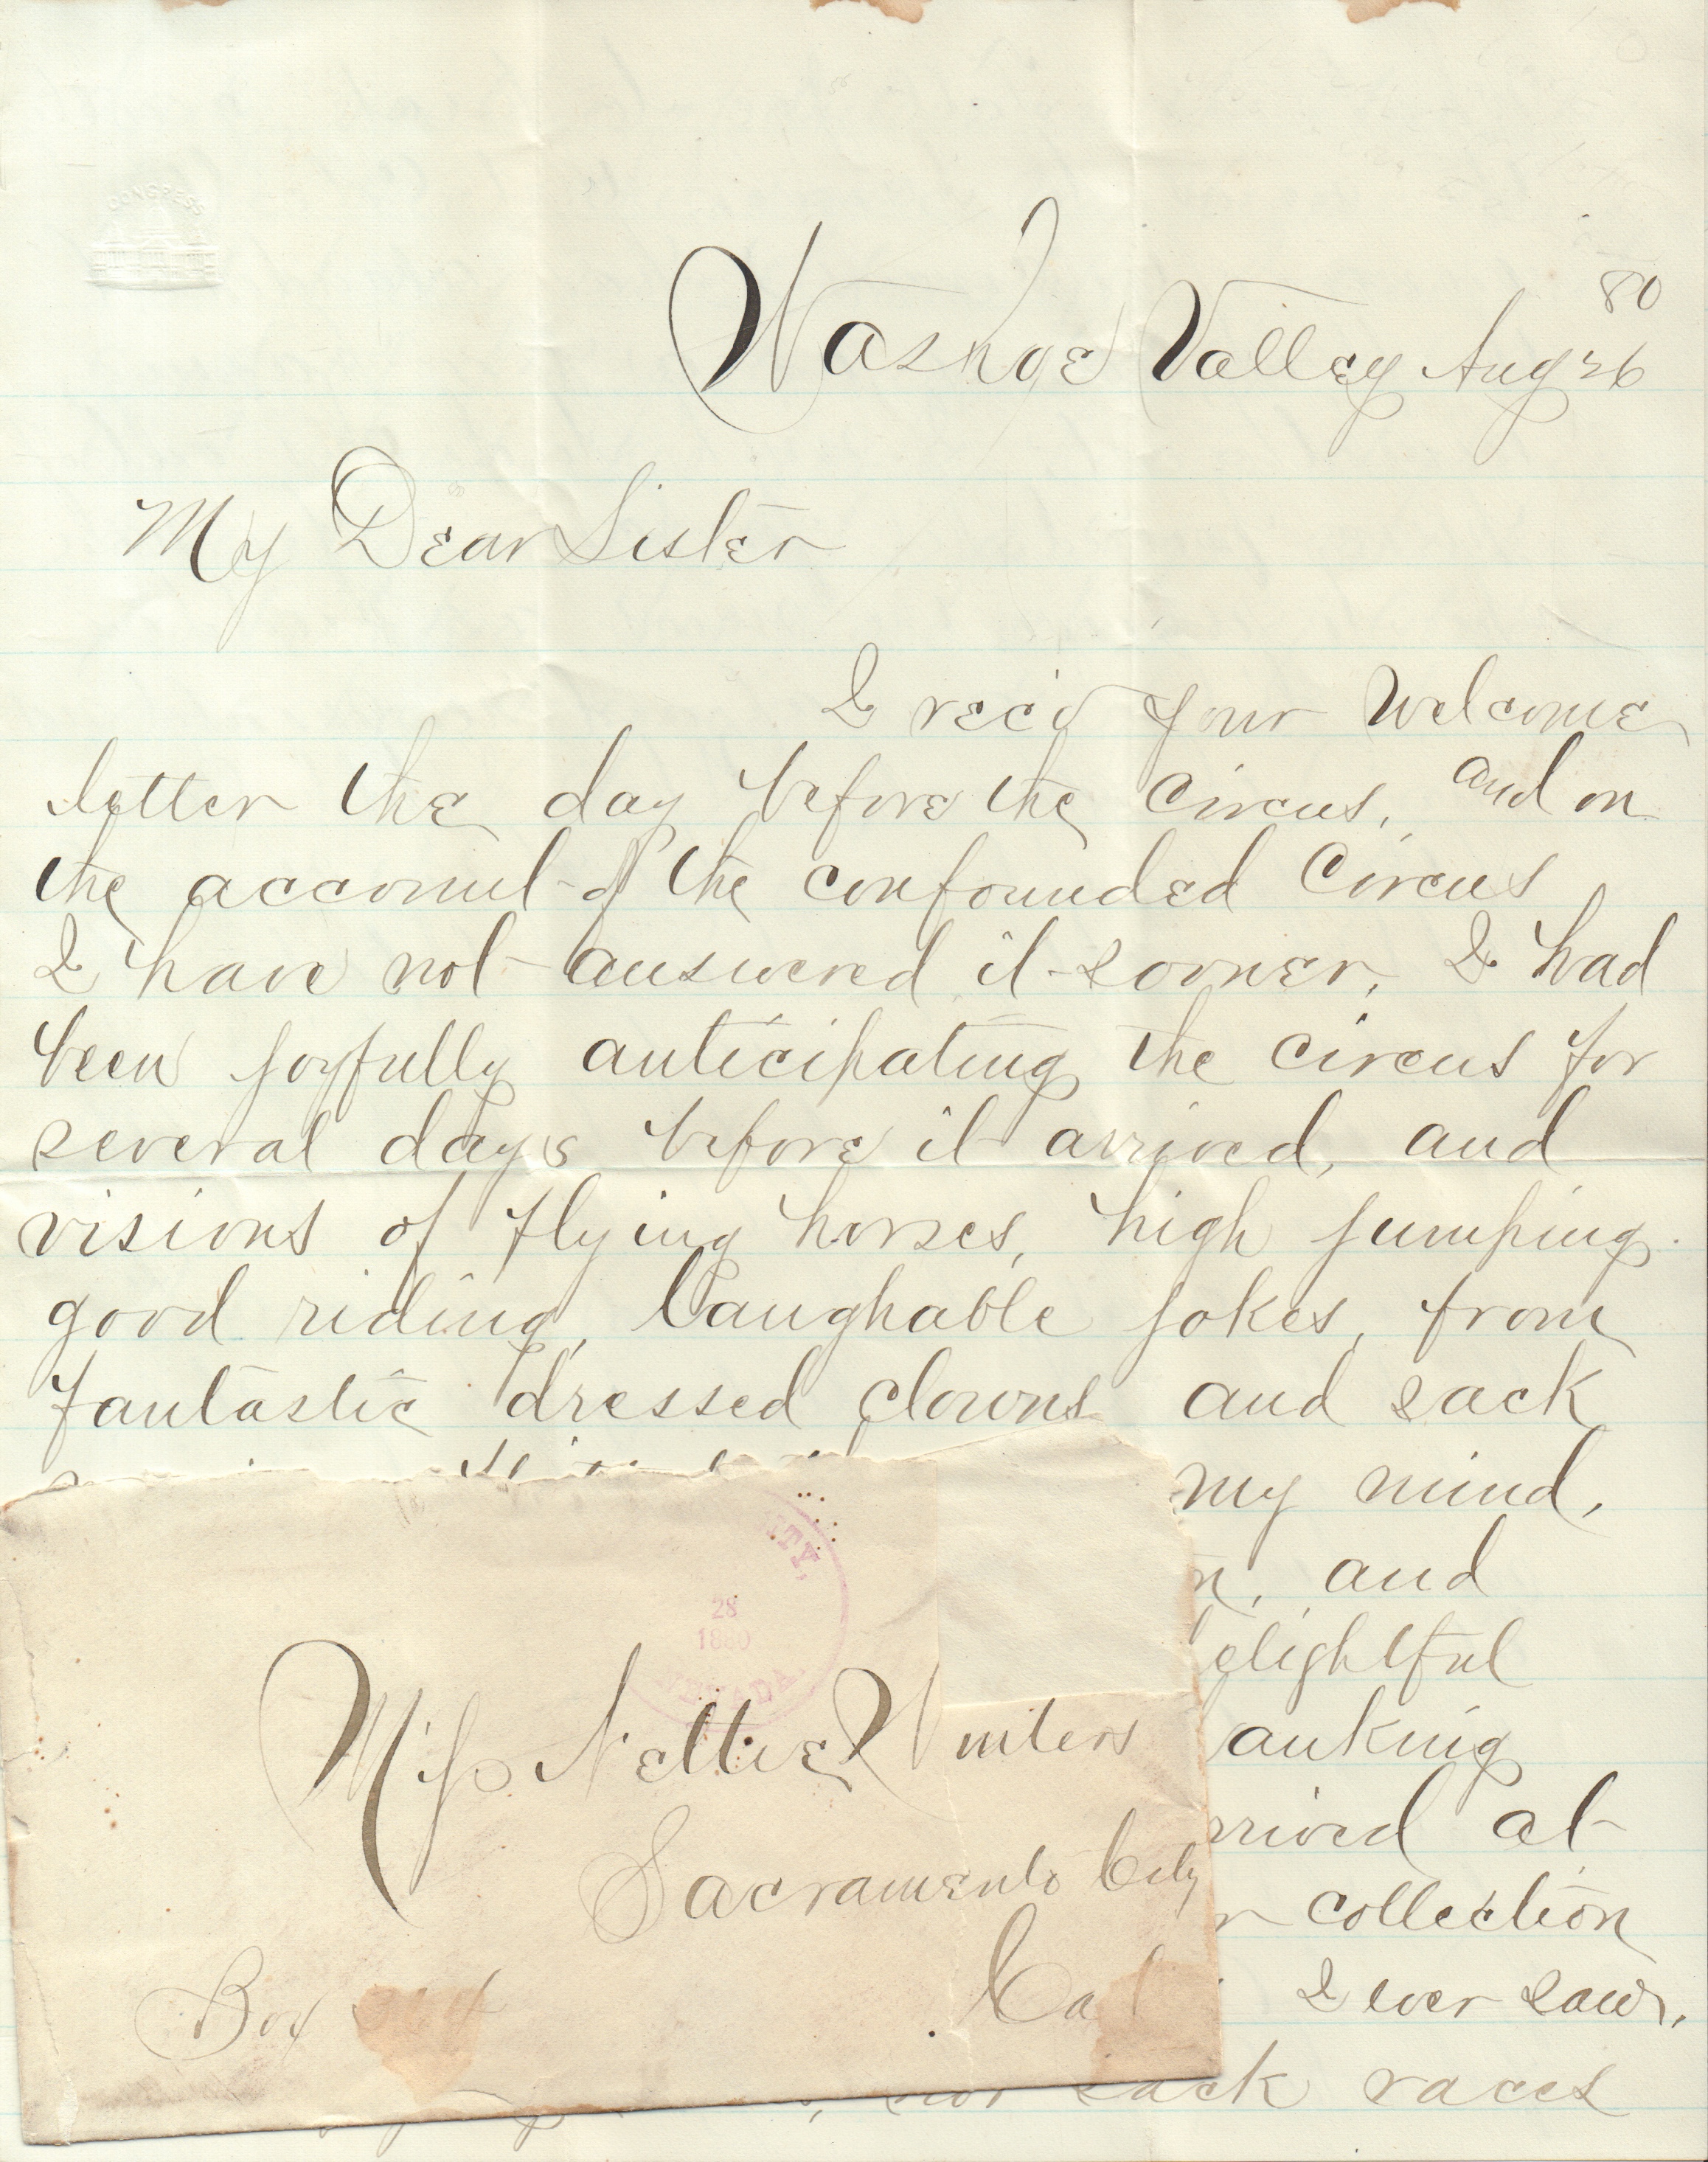 CONGRESS
80
Washoe Valley Aug 26
My Dear Sister
I rec'd your welcome
letter the day before the circus, and on
the account of the confounded Circus
I have not answered it sooner, I had
been joyfully anticipating the circus for
several days before it arrived, and
visions of flying horses, high jumping
good riding, laughable jokes, from
fantastic dressed clowns and sack
my mind,
and
elightful
anking
rrived at
collection
I ever saw,
sack races
ITY,
28
1880
NEVADA
Miss Nettie Winters
Sacramento City
Cal
Box